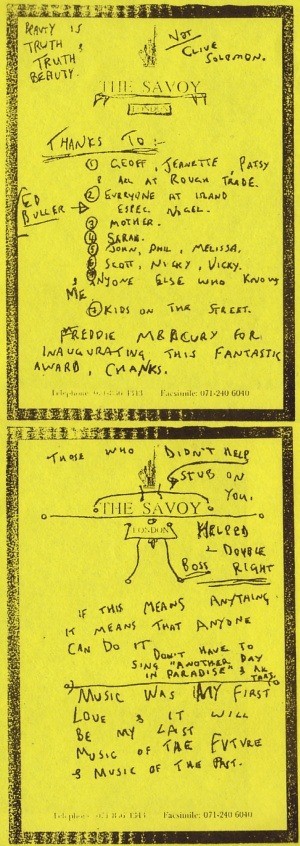 BEAUTY IS
TRUTH &
TRUTH
BEAUTY.
NOT
CLIVE
SOLOMON.
THE SAVOY
LONDON
THANKS TO :-
① GEOFF, JEANETTE, PATSY
& ALL AT ROUGH TRADE.
ED
BULLER
② EVERYONE AT ISLAND
ESPEC. NIGEL.
③ MOTHER.
④ SARAH.
⑤ JOHN, PHIL, MELISSA,
⑥ SCOTT, NICKY, VICKY.
& ANYONE ELSE WHO KNOWS
ME
⑦ KIDS ON THE STREET.
FREDDIE MERCURY FOR
INAUGURATING THIS FANTASTIC
AWARD, CHANKS.
Telephone: 071-836 4343 Facsimile: 071-240 6040
THOSE WHO DIDN'T HELP
STUB ON
YOU.
THE SAVOY
LONDON
HELPED
DOUBLE
BOSS RIGHT
IF THIS MEANS ANYTHING
IT MEANS THAT ANYONE
CAN DO IT
DON'T HAVE TO
SING "ANOTHER DAY
IN PARADISE" &
MUSIC WAS MY FIRST
LOVE & IT WILL
BE MY LAST
MUSIC OF THE FUTURE
& MUSIC OF THE PAST.
Telephone: 071-836 4343 Facsimile: 071-240 6040